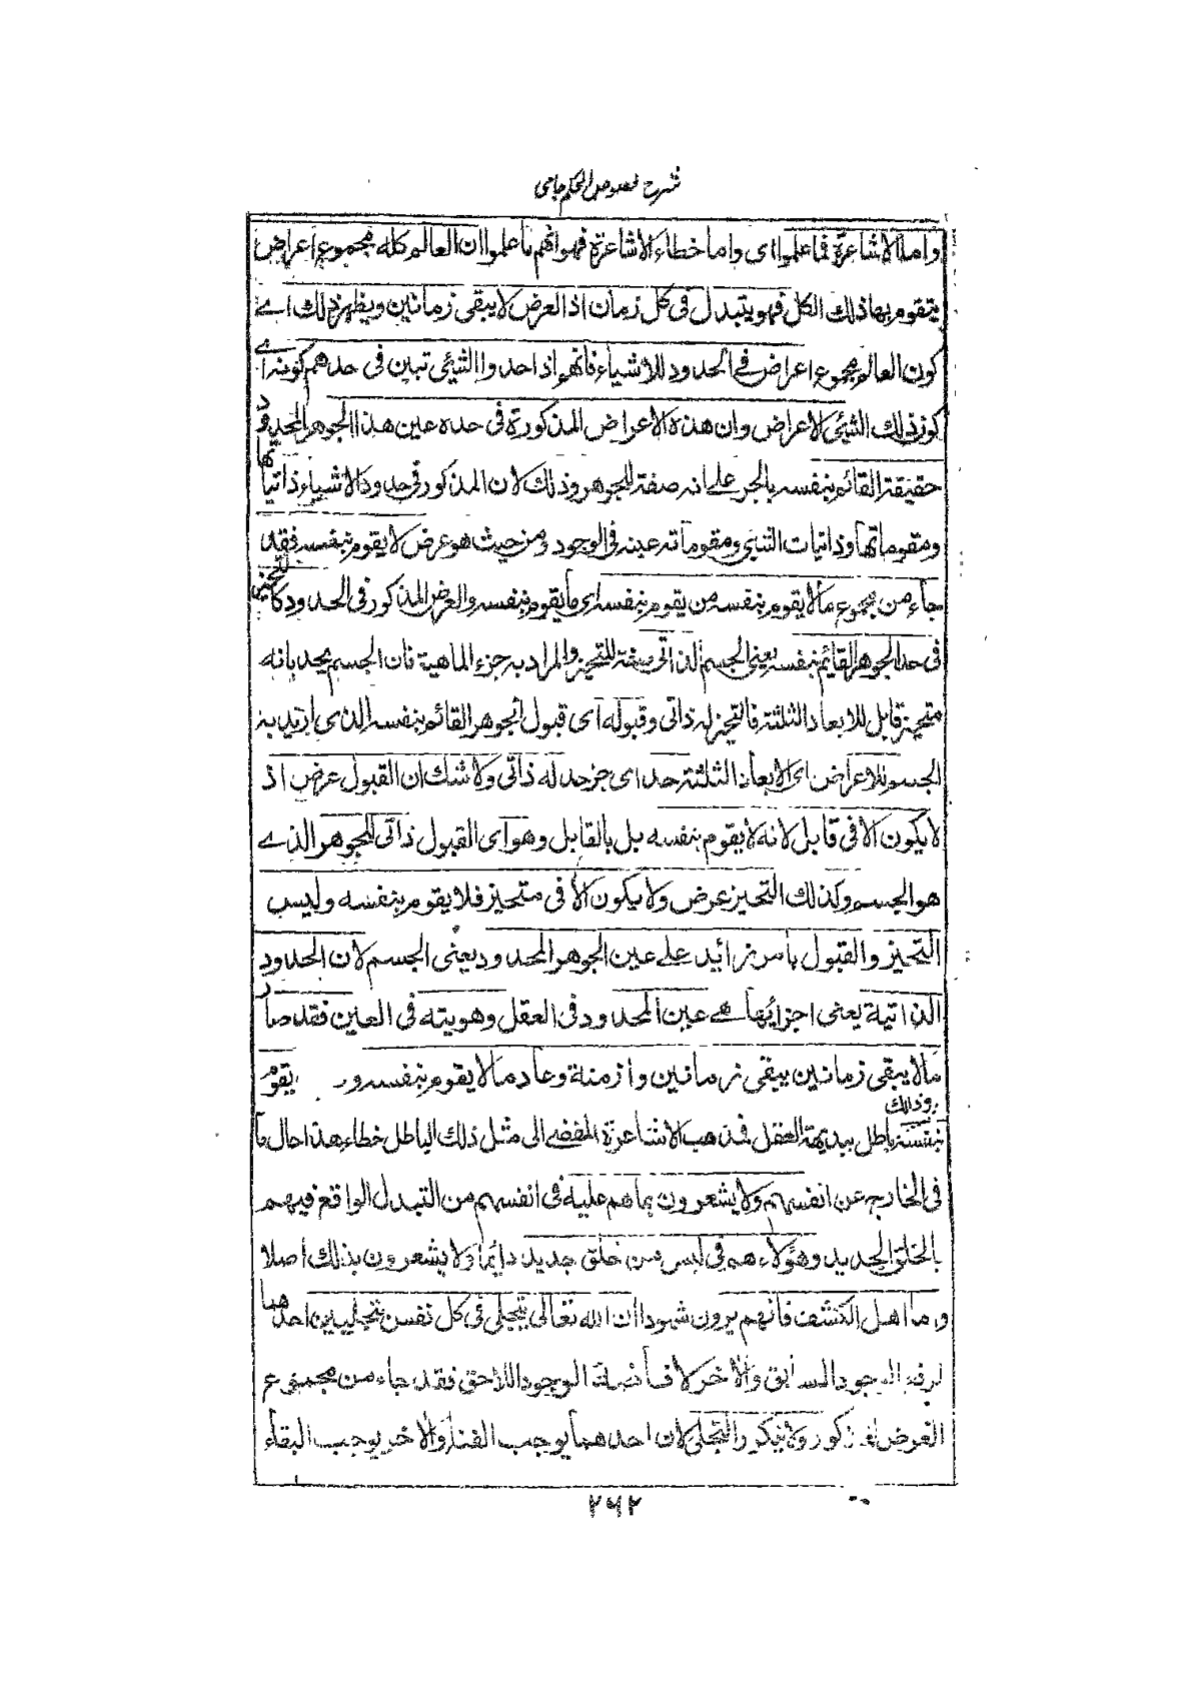 شرح فصوص الحكم جامى
واما الاشاعرة فما علموا اى واما خطاء الاشاعرة فهو انهم ما علموا ان العالم كله مجموع اعراض
يتقوم بها ذلك الكل فهو يتبدل فى كل زمان اذ العرض لا يبقى زمانين ويظهر ذلك اے
كون العالم مجموع اعراض فے الحدود للاشياء فانهم اذا حدوا الشئى تبين فى حدهم كونه اے
كون ذلك الشئى الاعراض وان هذه الاعراض المذكورة فى حده عين هذا الجوهر المحدود
حقيقة القائم بنفسه بالجر على انه صفة للجوهر وذلك لان المذكور فى حدود الاشياء ذاتياتها
ومقوماتها وذاتيات الشئى ومقوماته عينه فى الوجود ومن حيث هو عرض لا يقوم بنفسه فقد
جاء من مجموع ما لا يقوم بنفسه من يقوم بنفسه اى ما يقوم بنفسه والعرض المذكور فى الحدود كالتحيز
فى حد الجوهر القايم بنفسه يعنى الجسم الذاتى صفة للتحيز والمراد به جزء الماهية فان الجسم يحد بانه
متحيز قابل للابعاد الثلثة فالتحيز له ذاتى وقبوله اى قبول الجوهر القائم بنفسه الذى اريد به
الجسم للاعراض اى الابعاد الثلثة حد اى جزء حد له ذاتى ولا شك ان القبول عرض اذ
لا يكون الا فى قابل لانه لا يقوم بنفسه بل بالقابل وهو اى القبول ذاتى للجوهر الذے
هو الجسم وكذلك التحيز عرض ولا يكون الا فى متحيز فلا يقوم بنفسه وليس
التحيز والقبول بامر زائد على عين الجوهر المحدود يعنى الجسم لان الحدود
الذاتية يعنى اجزائها هے عين المحدود فى العقل وهويته فى العين فقد صار
ما لا يبقى زمانين يبقى زمانين وازمنة وعاد ما لا يقوم بنفسه يقوم
وذلك
بنفسه باطل ببديهة العقل فمذهب الاشاعرة المفضے الى مثل ذلك الباطل خطاء هذا حال ما
فى الخارج عن انفسهم ولا يشعرون بما هم عليه فى انفسهم من التبدل الواقع فيهم
بالخلق الجديد وهؤلاء هم فى لبس من خلق جديد دائما ولا يشعرون بذلك اصلا
واما اهل الكشف فانهم يرون شهودا ان الله تعالى يتجلى فى كل نفس بتجليين احدهما
لرفع الوجود السابق والآخر لافاضة الوجود اللاحق فقد جاء من مجموع
العرض المذكور ولا يتكرر التجلى لان احدهما يوجب الفناء والاخر يوجب البقاء
۲۶۲